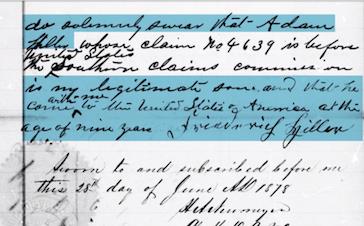 do solemnly swear that Adam
whose claim No 4639 is before
United States
the Southern claims commission
is my legitimate son, and that he
with me
came to the United States of America at the
age of nine years Friederich
Sworn to and subscribed before me
this 28th day of June AD 1878